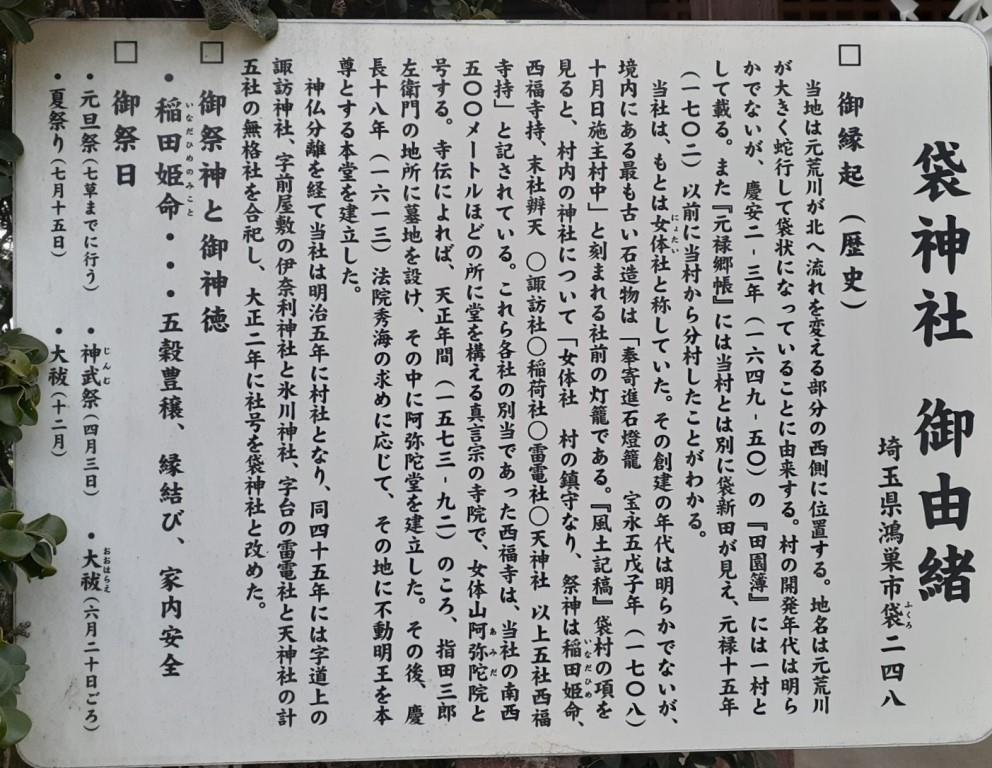 袋神社 御由緒
埼玉県鴻巣市袋二四八
ふくろ
□ 御縁起（歴史）
当地は元荒川が北へ流れを変える部分の西側に位置する。地名は元荒川
が大きく蛇行して袋状になっていることに由来する。村の開発年代は明ら
かでないが、慶安二-三年（一六四九-五〇）の『田園簿』には一村と
して載る。また『元禄郷帳』には当村とは別に袋新田が見え、元禄十五年
（一七〇二）以前に当村から分村したことがわかる。
当社は、もとは女体社と称していた。その創建の年代は明らかでないが、
にょたい
境内にある最も古い石造物は「奉寄進石燈籠 宝永五戊子年（一七〇八）
十月日施主村中」と刻まれる社前の灯籠である。『風土記稿』袋村の項を
見ると、村内の神社について「女体社 村の鎮守なり、祭神は稲田姫命、
いなだひめ
西福寺持、末社辨天 〇諏訪社〇稲荷社〇雷電社〇天神社 以上五社西福
寺持」と記されている。これら各社の別当であった西福寺は、当社の南西
五〇〇メートルほどの所に堂を構える真言宗の寺院で、女体山阿弥陀院と
あみだ
号する。寺伝によれば、天正年間（一五七三-九二）のころ、指田三郎
左衛門の地所に墓地を設け、その中に阿弥陀堂を建立した。その後、慶
長十八年（一六一三）法院秀海の求めに応じて、その地に不動明王を本
尊とする本堂を建立した。
神仏分離を経て当社は明治五年に村社となり、同四十五年には字道上の
諏訪神社、字前屋敷の伊奈利神社と氷川神社、字台の雷電社と天神社の計
五社の無格社を合祀し、大正二年に社号を袋神社と改めた。
□ 御祭神と御神徳
・稲田姫命・・・五穀豊穣、縁結び、家内安全
いなだひめのみこと
□ 御祭日
・元旦祭（七草までに行う） ・神武祭（四月三日） ・大祓（六月二十日ごろ）
じんむ おおはらえ
・夏祭り（七月十五日） ・大祓（十二月）